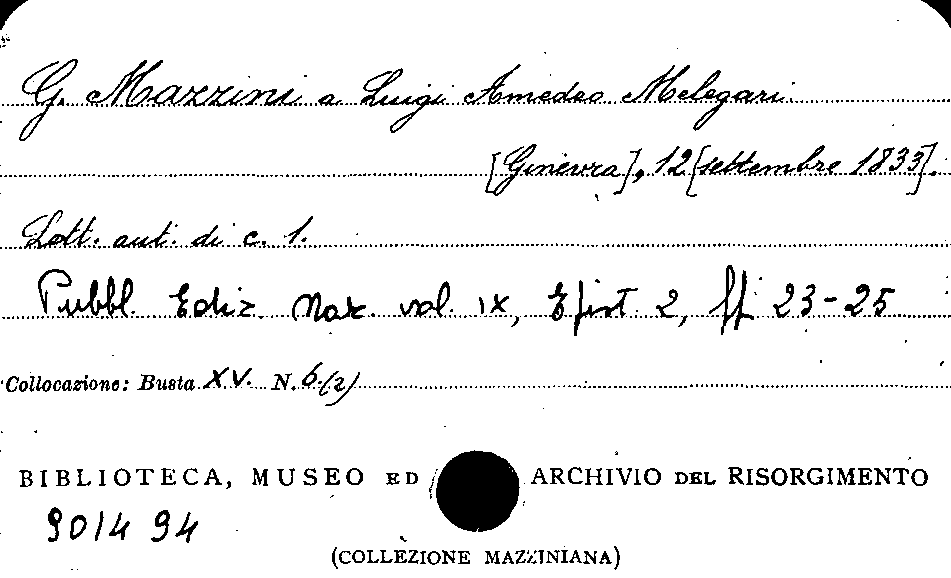 G. Mazzini a Luigi Amedeo Melegari.
[Ginevra], 12 [settembre 1833].
Lett. aut. di c. 1.
Pubbl. Ediz. Naz. vol. IX, Epist. 2, pp. 23-25
Collocazione: Busta XV. N. 6.(2)
BIBLIOTECA, MUSEO ED ARCHIVIO DEL RISORGIMENTO
901494
(COLLEZIONE MAZZINIANA)